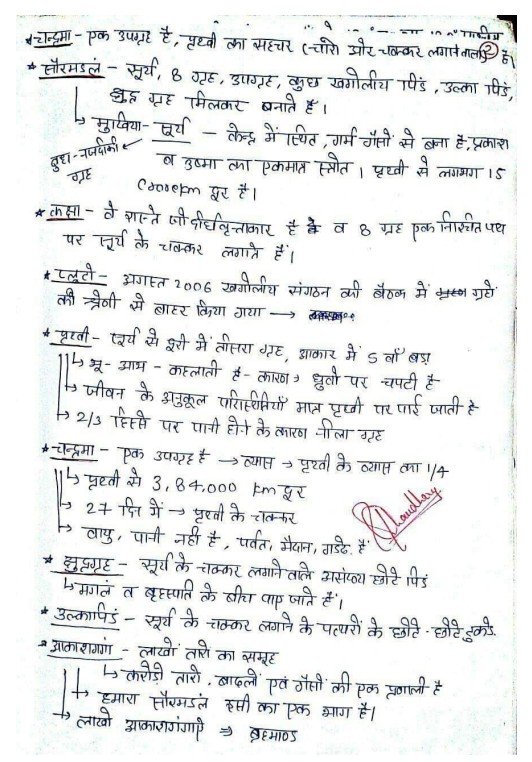 * चन्द्रमा - एक उपग्रह है, पृथ्वी का सहचर (चारो ओर चक्कर लगाने वाला) है।
2
* सौरमडलं - सूर्य, 8 ग्रह, उपग्रह, कुछ खगोलीय पिडं, उल्का पिडं,
क्षुद्र ग्रह मिलकर बनाते हैं।
↳ मुखिया - सूर्य - केन्द्र में स्थित, गर्म गैसों से बना है, प्रकाश
बुध - नजदीकी ग्रह
व उष्मा का एकमात्र स्त्रोत। पृथ्वी से लगभग 15
करोड km दूर है।
* कक्षा - वे रास्ते जो दीर्घवृत्ताकार है व 8 ग्रह एक निश्चित पथ
पर सूर्य के चक्कर लगाते हैं।
* प्लूटो - अगस्त 2006 खगोलीय संगठन की बैठक में ग्रहो
की श्रेणी से बाहर किया गया →
* पृथ्वी - सूर्य से दूरी में तीसरा ग्रह, आकार में 5 वाँ बड़ा
↳ भू - आभ - कहलाती है - कारण, ध्रुवो पर चपटी है
↳ जीवन के अनुकूल परिस्थितियाँ मात्र पृथ्वी पर पाई जाती है
↳ 2/3 हिस्से पर पानी होने के कारण नीला ग्रह
* चन्द्रमा - एक उपग्रह है → व्यास → पृथ्वी के व्यास का 1/4
↳ पृथ्वी से 3,84,000 km दूर
↳ 27 दिन में → पृथ्वी के चक्कर
↳ वायु, पानी नहीं है, पर्वत, मैदान, गडढे है
Choudhary
* क्षुद्रग्रह - सूर्य के चक्कर लगाने वाले असंख्य छोटे पिडं
↳ मगलं व बृहस्पति के बीच पाए जाते हैं।
* उल्कापिडं - सूर्य के चक्कर लगाने के पत्थरों के छोटे-छोटे टुकडे.
* आकाशगगां - लाखों तारो का समूह
↳ करोडो तारो, बादलों एवं गैसों की एक प्रणाली है
↳ हमारा सौरमडलं इसी का एक भाग है।
↳ लाखो आकाशगंगाऐ ⇒ ब्रहमाण्ड